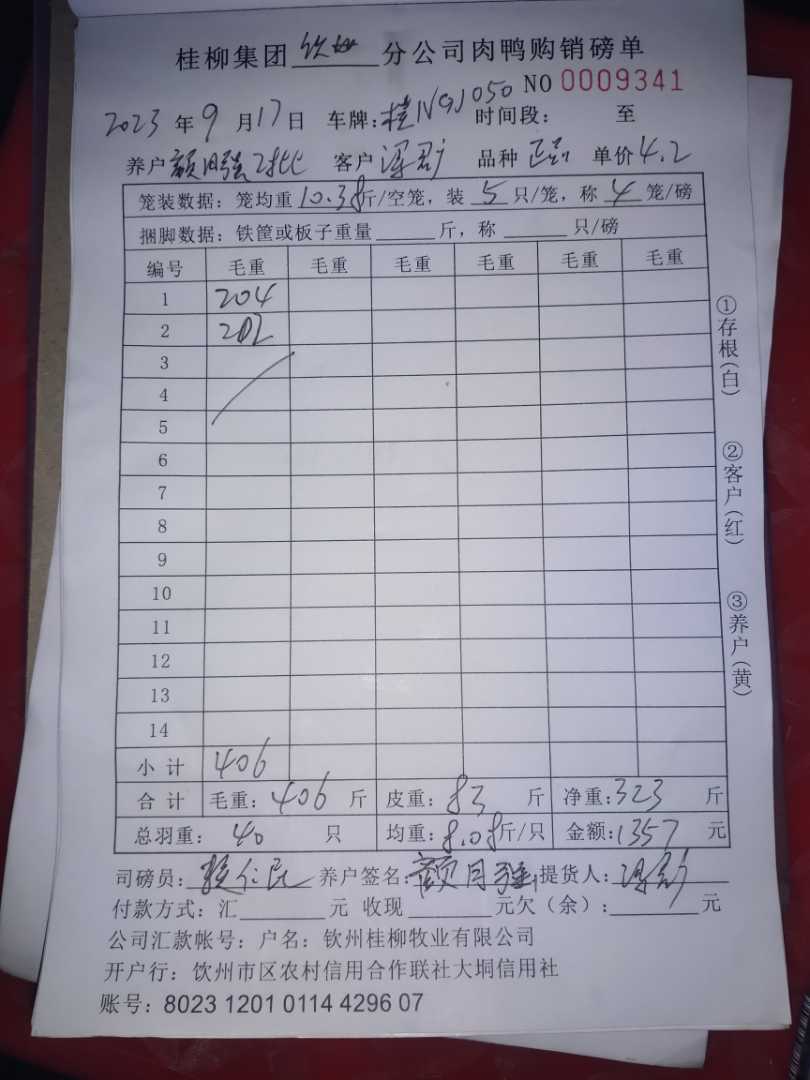 桂柳集团 钦州 分公司肉鸭购销磅单
NO 0009341
2023 年 9 月 17 日 车牌: 桂N9J050 时间段: 至
养户 颜月强 客户 品种 单价 4.2
笼装数据: 笼均重 10.38 斤/空笼, 装 5 只/笼, 称 4 笼/磅
捆脚数据: 铁筐或板子重量 斤, 称 只/磅
编号 毛重 毛重 毛重 毛重 毛重 毛重
1 204
2 202
3
4
5
6
7
8
9
10
11
12
13
14
小计 406
合计 毛重: 406 斤 皮重: 83 斤 净重: 323 斤
总羽重: 40 只 均重: 8.08 斤/只 金额: 1357 元
司磅员: 养户签名: 颜月强 提货人:
付款方式: 汇 元 收现 元欠(余): 元
公司汇款帐号: 户名: 钦州桂柳牧业有限公司
开户行: 饮州市区农村信用合作联社大垌信用社
账号: 8023 1201 0114 4296 07
①存根(白)
②客户(红)
③养户(黄)